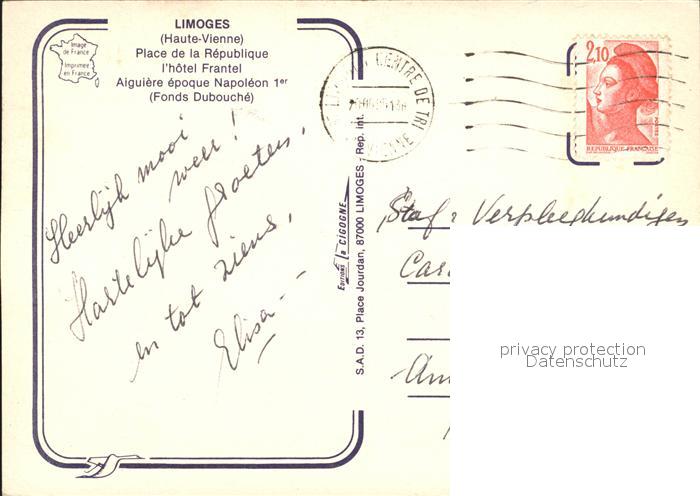 LIMOGES
(Haute-Vienne)
Place de la République
l'hôtel Frantel
Aiguière époque Napoléon 1er
(Fonds Dubouché)
Image
de France
Imprimée
en France
Heerlijk mooi
weer!
Hartelijke groeten,
en tot ziens,
Elisa
Editions la CIGOGNE
S.A.D. 13, Place Jourdan, 87000 LIMOGES - Rep. int.
CENTRE DE TRI
VIENNE
2,10
POSTES
REPUBLIQUE FRANÇAISE
Staf: Verpleegkundigen
Car
Am
privacy protection
Datenschutz